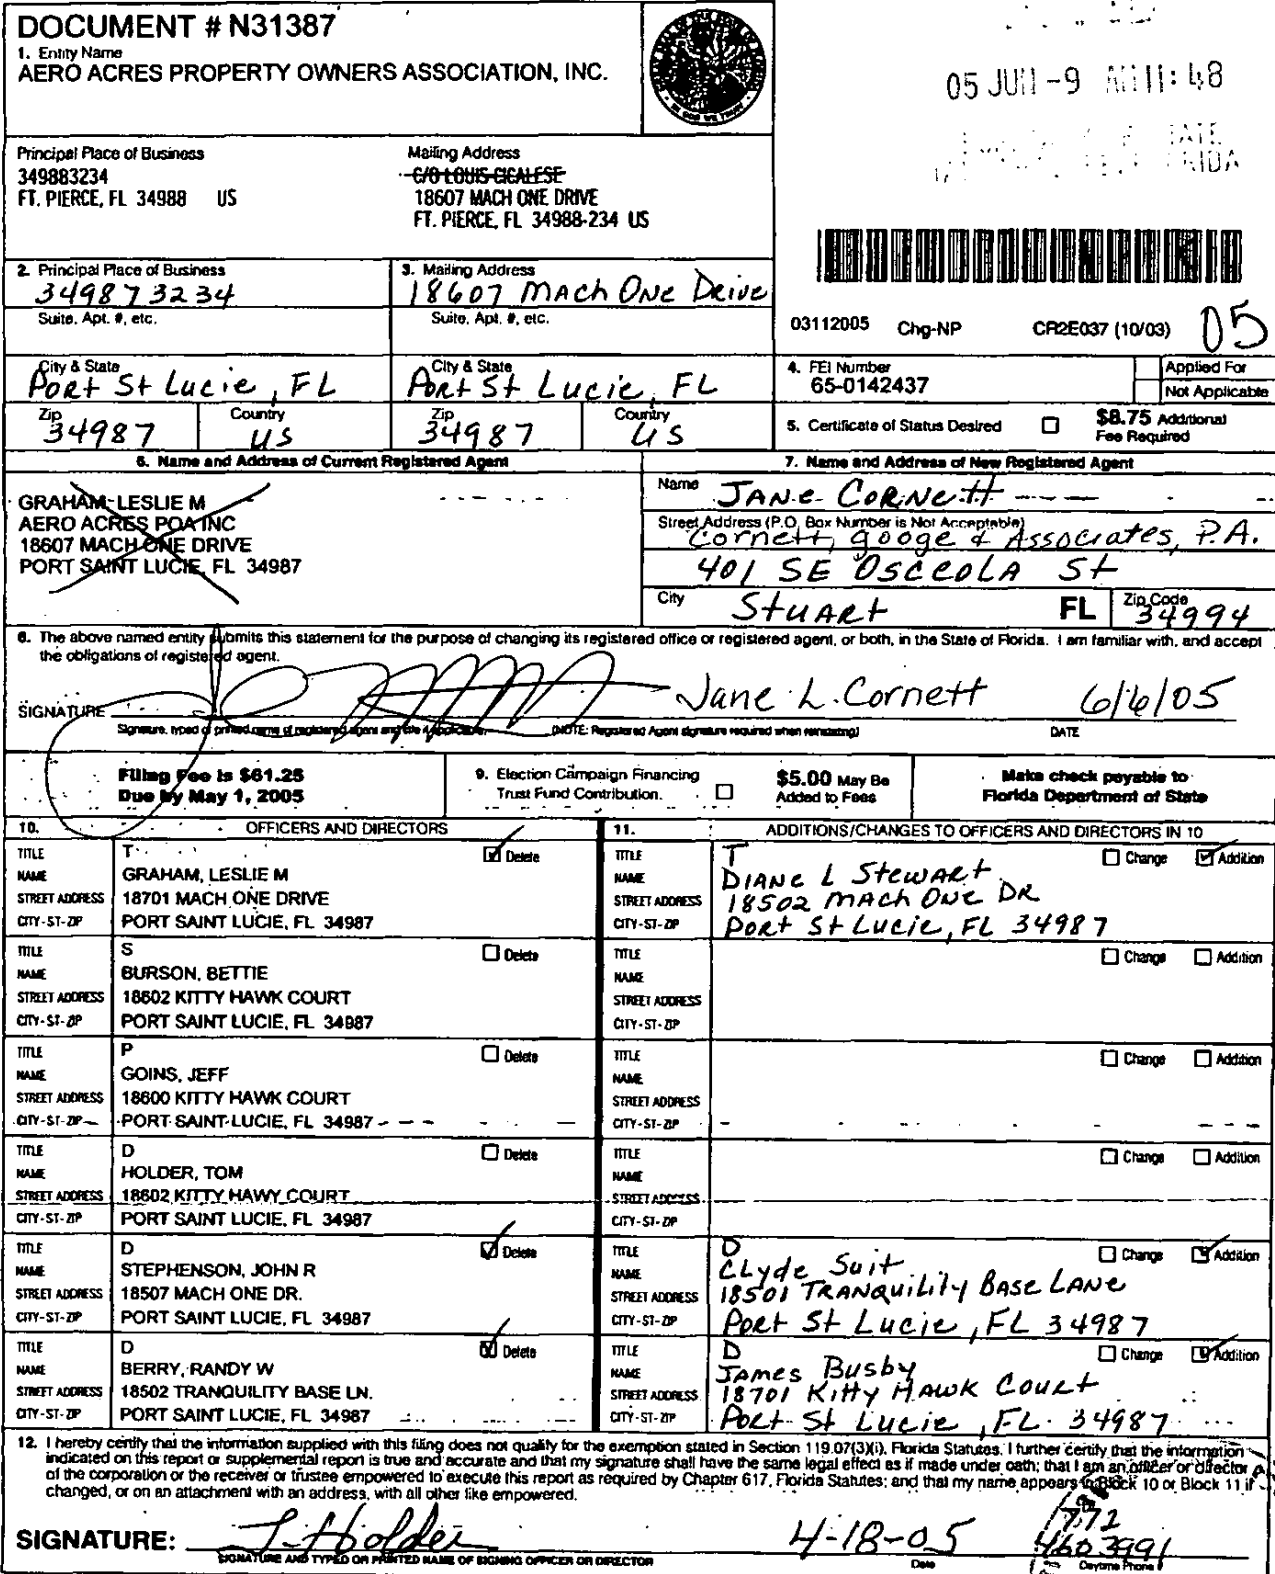 DOCUMENT # N31387
1. Entity Name
AERO ACRES PROPERTY OWNERS ASSOCIATION, INC.
05 JUN -9 AM 11: 48
Principal Place of Business
349883234
FT. PIERCE, FL 34988 US
Mailing Address
C/O LOUIS CICALESE
18607 MACH ONE DRIVE
FT. PIERCE, FL 34988-234 US
2. Principal Place of Business
349873234
Suite, Apt. #, etc.
City & State
Port St Lucie, FL
Zip
34987
Country
US
3. Mailing Address
18607 Mach One Drive
Suite, Apt. #, etc.
City & State
Port St Lucie, FL
Zip
34987
Country
US
03112005 Chg-NP CR2E037 (10/03)
05
4. FEI Number
65-0142437
Applied For
Not Applicable
5. Certificate of Status Desired
$8.75 Additional
Fee Required
6. Name and Address of Current Registered Agent
GRAHAM, LESLIE M
AERO ACRES POA INC
18607 MACH ONE DRIVE
PORT SAINT LUCIE, FL 34987
7. Name and Address of New Registered Agent
Name
Jane Cornett
Street Address (P.O. Box Number is Not Acceptable)
Cornett, Googe & Associates, P.A.
401 SE Osceola St
City
Stuart
FL
Zip Code
34994
8. The above named entity submits this statement for the purpose of changing its registered office or registered agent, or both, in the State of Florida. I am familiar with, and accept
the obligations of registered agent.
SIGNATURE
Jane L. Cornett
6/6/05
Signature, typed or printed name of registered agent and title if applicable.
(NOTE: Registered Agent signature required when reinstating)
DATE
Filing Fee is $61.25
Due by May 1, 2005
9. Election Campaign Financing
Trust Fund Contribution.
$5.00 May Be
Added to Fees
Make check payable to
Florida Department of State
10. OFFICERS AND DIRECTORS
TITLE T Delete
NAME GRAHAM, LESLIE M
STREET ADDRESS 18701 MACH ONE DRIVE
CITY-ST-ZIP PORT SAINT LUCIE, FL 34987
TITLE S Delete
NAME BURSON, BETTIE
STREET ADDRESS 18602 KITTY HAWK COURT
CITY-ST-ZIP PORT SAINT LUCIE, FL 34987
TITLE P Delete
NAME GOINS, JEFF
STREET ADDRESS 18600 KITTY HAWK COURT
CITY-ST-ZIP PORT SAINT LUCIE, FL 34987
TITLE D Delete
NAME HOLDER, TOM
STREET ADDRESS 18602 KITTY HAWY COURT
CITY-ST-ZIP PORT SAINT LUCIE, FL 34987
TITLE D Delete
NAME STEPHENSON, JOHN R
STREET ADDRESS 18507 MACH ONE DR.
CITY-ST-ZIP PORT SAINT LUCIE, FL 34987
TITLE D Delete
NAME BERRY, RANDY W
STREET ADDRESS 18502 TRANQUILITY BASE LN.
CITY-ST-ZIP PORT SAINT LUCIE, FL 34987
11. ADDITIONS/CHANGES TO OFFICERS AND DIRECTORS IN 10
TITLE T Change Addition
NAME Diane L Stewart
STREET ADDRESS 18502 Mach One DR
CITY-ST-ZIP Port St Lucie, FL 34987
TITLE Change Addition
NAME
STREET ADDRESS
CITY-ST-ZIP
TITLE Change Addition
NAME
STREET ADDRESS
CITY-ST-ZIP
TITLE Change Addition
NAME
STREET ADDRESS
CITY-ST-ZIP
TITLE D Change Addition
NAME Clyde Suit
STREET ADDRESS 18501 Tranquility Base Lane
CITY-ST-ZIP Port St Lucie, FL 34987
TITLE D Change Addition
NAME James Busby
STREET ADDRESS 18701 Kitty Hawk Court
CITY-ST-ZIP Port St Lucie, FL. 34987
12. I hereby certify that the information supplied with this filing does not qualify for the exemption stated in Section 119.07(3)(i), Florida Statutes. I further certify that the information
indicated on this report or supplemental report is true and accurate and that my signature shall have the same legal effect as if made under oath; that I am an officer or director
of the corporation or the receiver or trustee empowered to execute this report as required by Chapter 617, Florida Statutes; and that my name appears in Block 10 or Block 11 if
changed, or on an attachment with an address, with all other like empowered.
SIGNATURE: T. Holder 4-18-05
772
4603991
SIGNATURE AND TYPED OR PRINTED NAME OF SIGNING OFFICER OR DIRECTOR
Date
Daytime Phone #